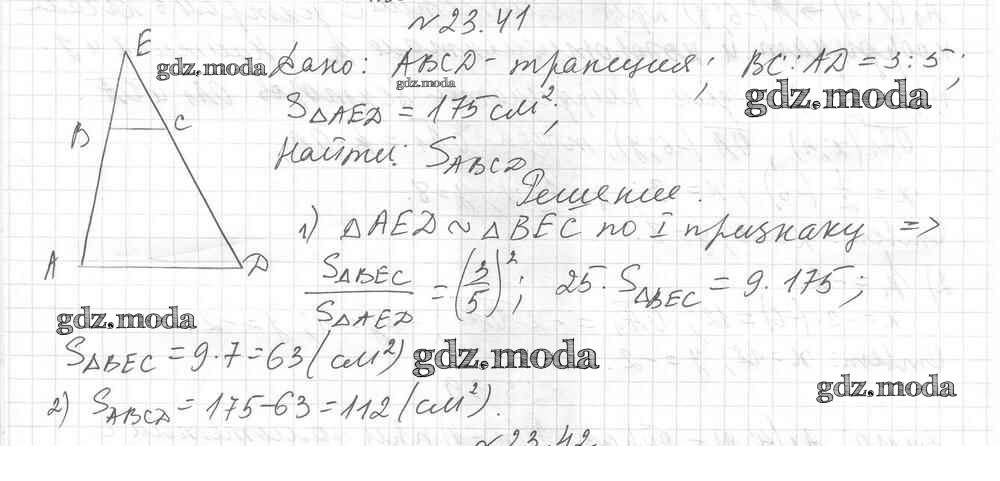 № 23.41
E
gdz.moda Дано: ABCD - трапеция; BC : AD = 3 : 5;
gdz.moda
gdz.moda
S△AED = 175 см²;
B C
Найти: SABCD
Решение.
1) △AED ~ △BEC по I признаку =>
A D
S△BEC / S△AED = (3/5)²; 25 · S△BEC = 9 · 175;
gdz.moda
S△BEC = 9 · 7 = 63 (см²) gdz.moda
gdz.moda
2) SABCD = 175 - 63 = 112 (см²).
№ 23.42